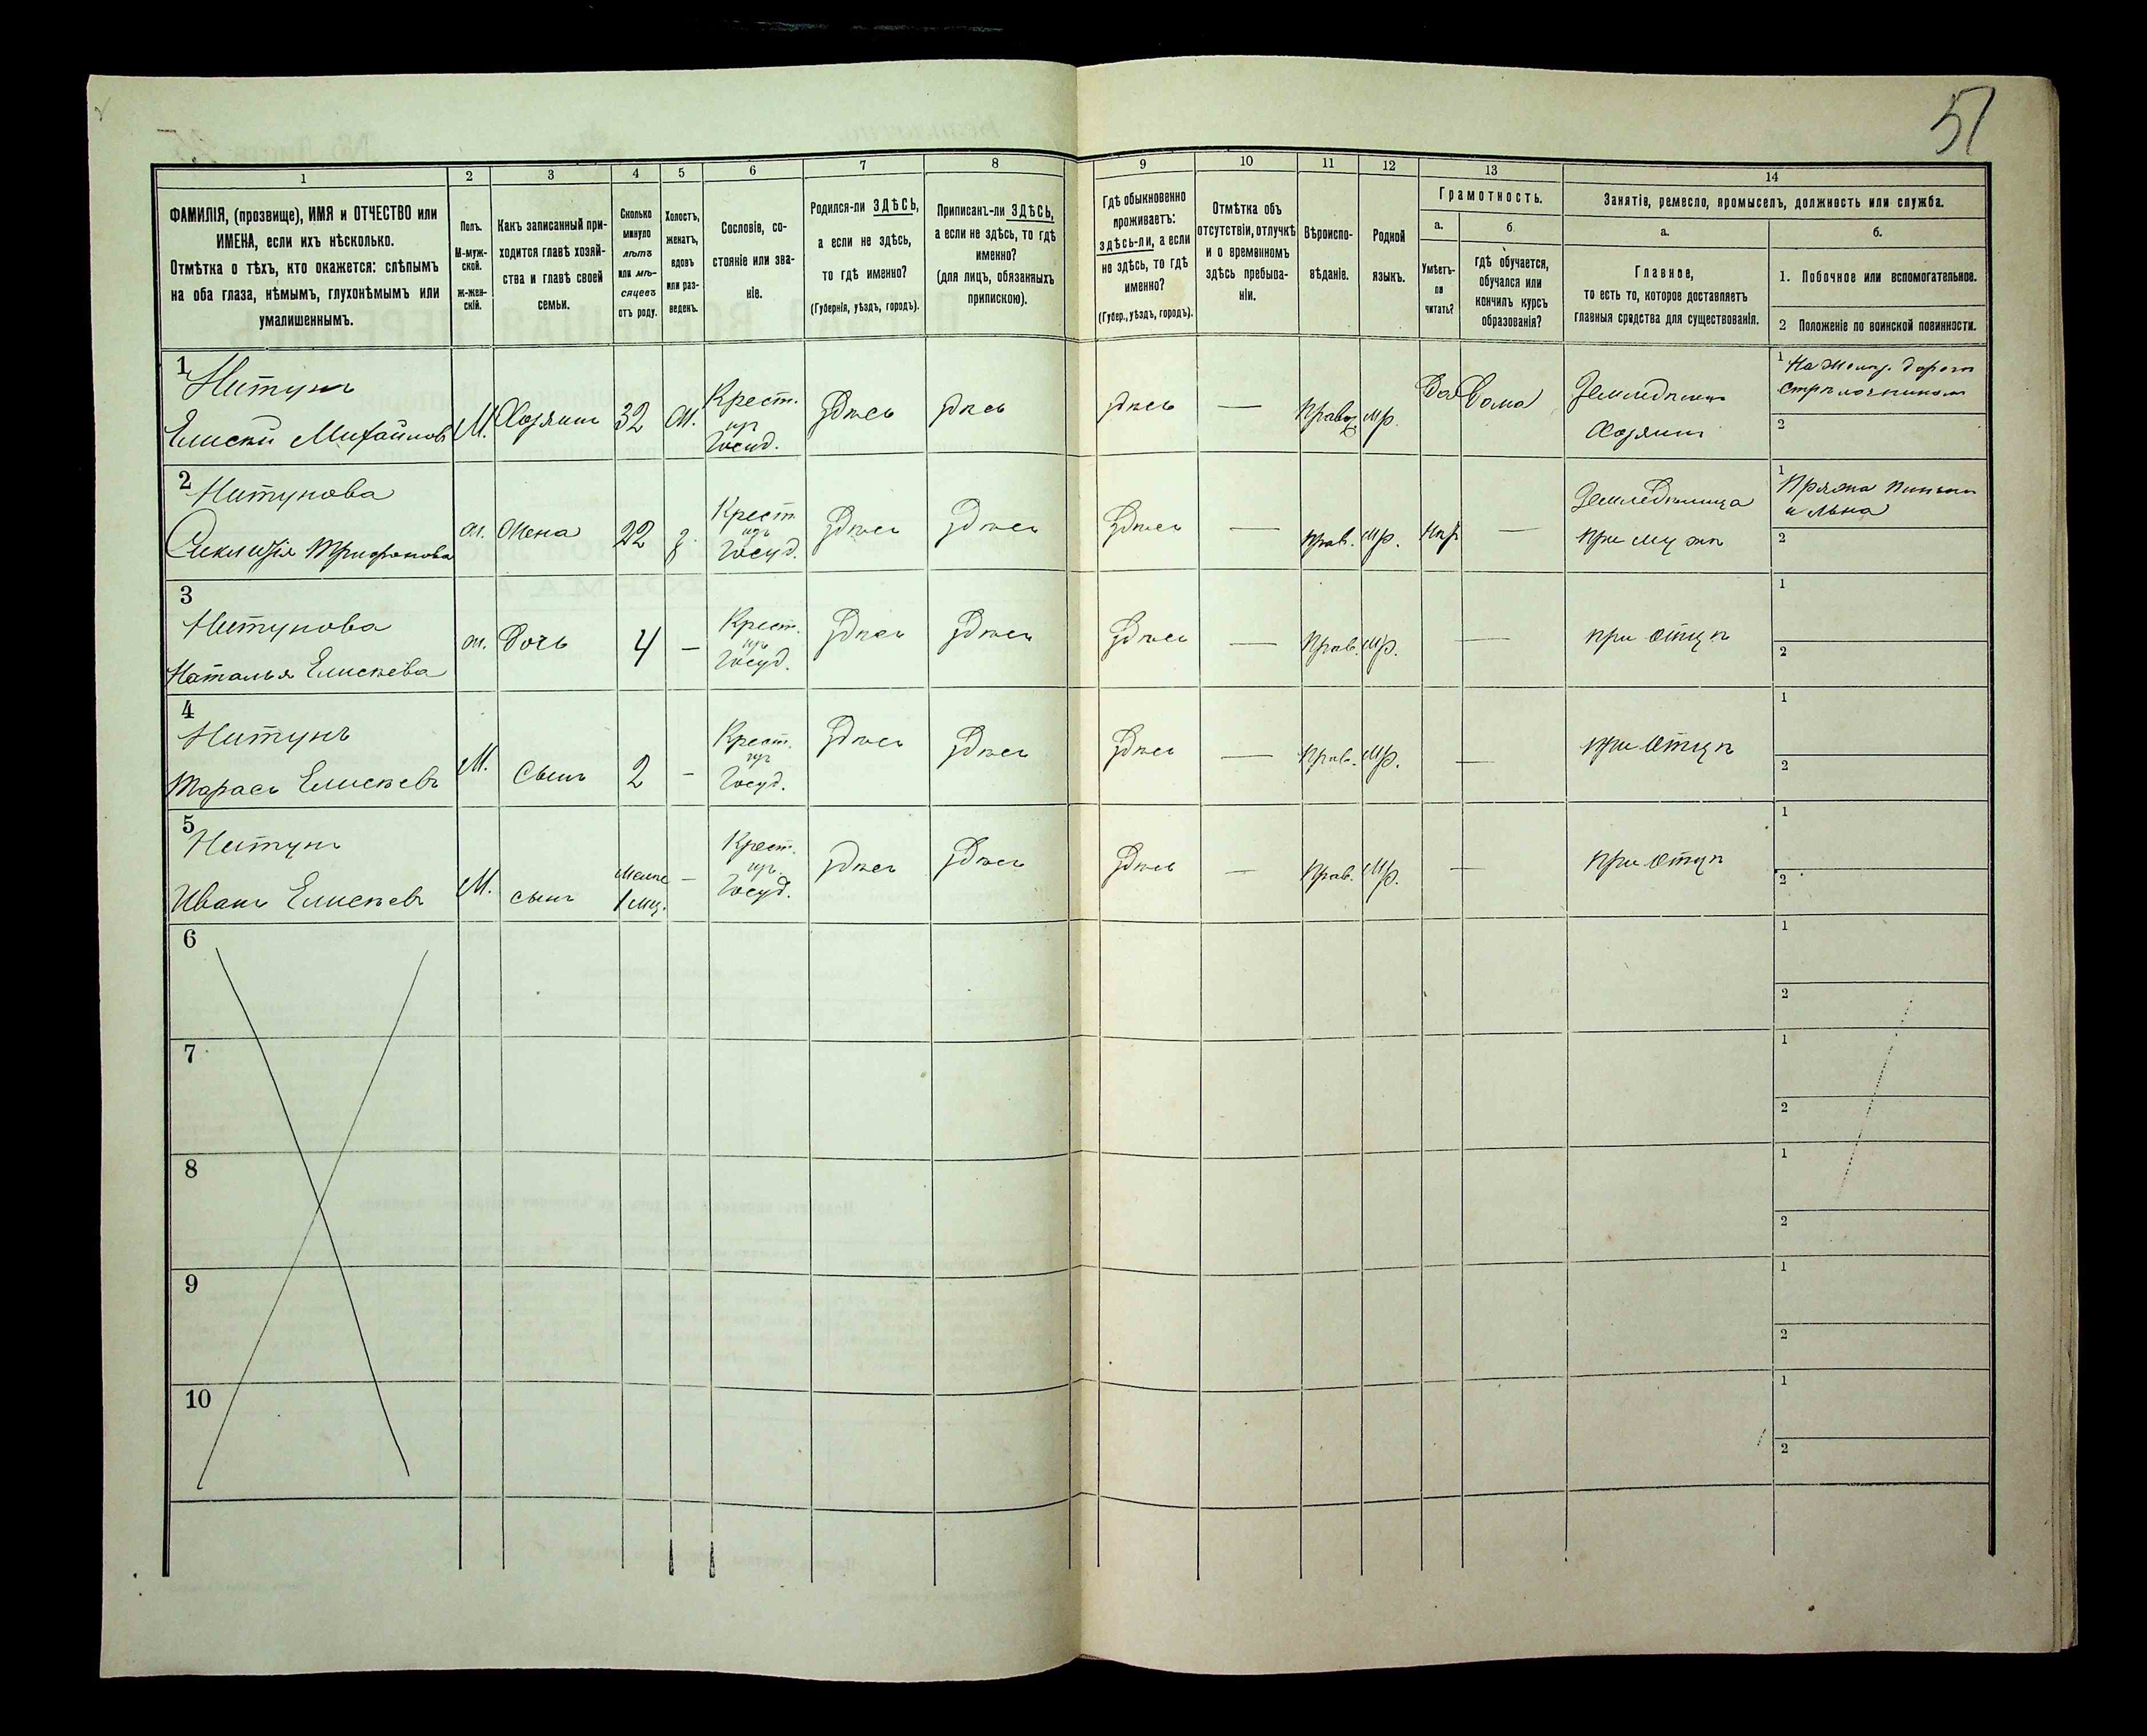 51
1
ФАМИЛІЯ, (прозвище), ИМЯ и ОТЧЕСТВО или
ИМЕНА, если ихъ нѣсколько.
Отмѣтка о тѣхъ, кто окажется: слѣпымъ
на оба глаза, нѣмымъ, глухонѣмымъ или
умалишеннымъ.
2
Полъ.
М-муж-
ской.
Ж-жен-
скій.
3
Какъ записанный при-
ходится главѣ хозяй-
ства и главѣ своей
семьи.
4
Сколько
минуло
лѣтъ
или мѣ-
сяцевъ
отъ роду.
5
Холостъ,
женатъ,
вдовъ
или раз-
веденъ.
6
Сословіе, со-
стояніе или зва-
ніе.
7
Родился-ли ЗДѢСЬ,
а если не здѣсь,
то гдѣ именно?
(Губернія, уѣздъ, городъ).
8
Приписанъ-ли ЗДѢСЬ,
а если не здѣсь, то гдѣ
именно?
(для лицъ, обязанныхъ
припискою).
9
Гдѣ обыкновенно
проживаетъ:
здѣсь-ли, а если
не здѣсь, то гдѣ
именно?
(Губер., уѣздъ, городъ).
10
Отмѣтка объ
отсутствіи, отлучкѣ
и о временномъ
здѣсь пребыва-
ніи.
11
Вѣроиспо-
вѣданіе.
12
Родной
языкъ.
13
Грамотность.
а.
Умѣетъ-
ли
читать?
б.
гдѣ обучается,
обучался или
кончилъ курсъ
образованія?
14
Занятіе, ремесло, промыселъ, должность или служба.
а.
Главное,
то есть то, которое доставляетъ
главныя средства для существованія.
б.
1. Побочное или вспомогательное.
2 Положеніе по воинской повинности.
1
Нитунъ
Елисѣй Михайловъ
М.
Хозяинъ
32
Ж.
Крест.
изъ
Госуд.
Здѣсь
Здѣсь
Здѣсь
—
Правос
мр.
Да
Дома
Земледѣлецъ
Хозяинъ
1 На Желѣз. дорогѣ
Стрѣлочникомъ
2
2
Нитунова
Трифонова
ж.
Жена
22
з.
Крест.
изъ
Госуд.
Здѣсь
Здѣсь
Здѣсь
—
Прав.
Мр.
Нѣт
—
Земледѣлица
При мужѣ
1 Пряжа
и льна
2
3
Нитунова
Наталья Елисѣева
ж.
Дочь
4
—
Крест.
изъ
Госуд.
Здѣсь
Здѣсь
Здѣсь
—
Прав.
Мр.
—
при отцѣ
1
2
4
Нитунъ
Тарасъ Елисѣевъ
М.
Сынъ
2
—
Крест.
изъ
Госуд.
Здѣсь
Здѣсь
Здѣсь
—
Прав.
Мр.
—
при отцѣ
1
2
5
Нитунъ
Иванъ Елисѣевъ
М.
сынъ
Менѣе
1 мц.
—
Крест.
изъ
Госуд.
Здѣсь
Здѣсь
Здѣсь
—
Прав.
Мр.
—
при отцѣ
1
2
6
1
2
7
1
2
8
1
2
9
1
2
10
1
2